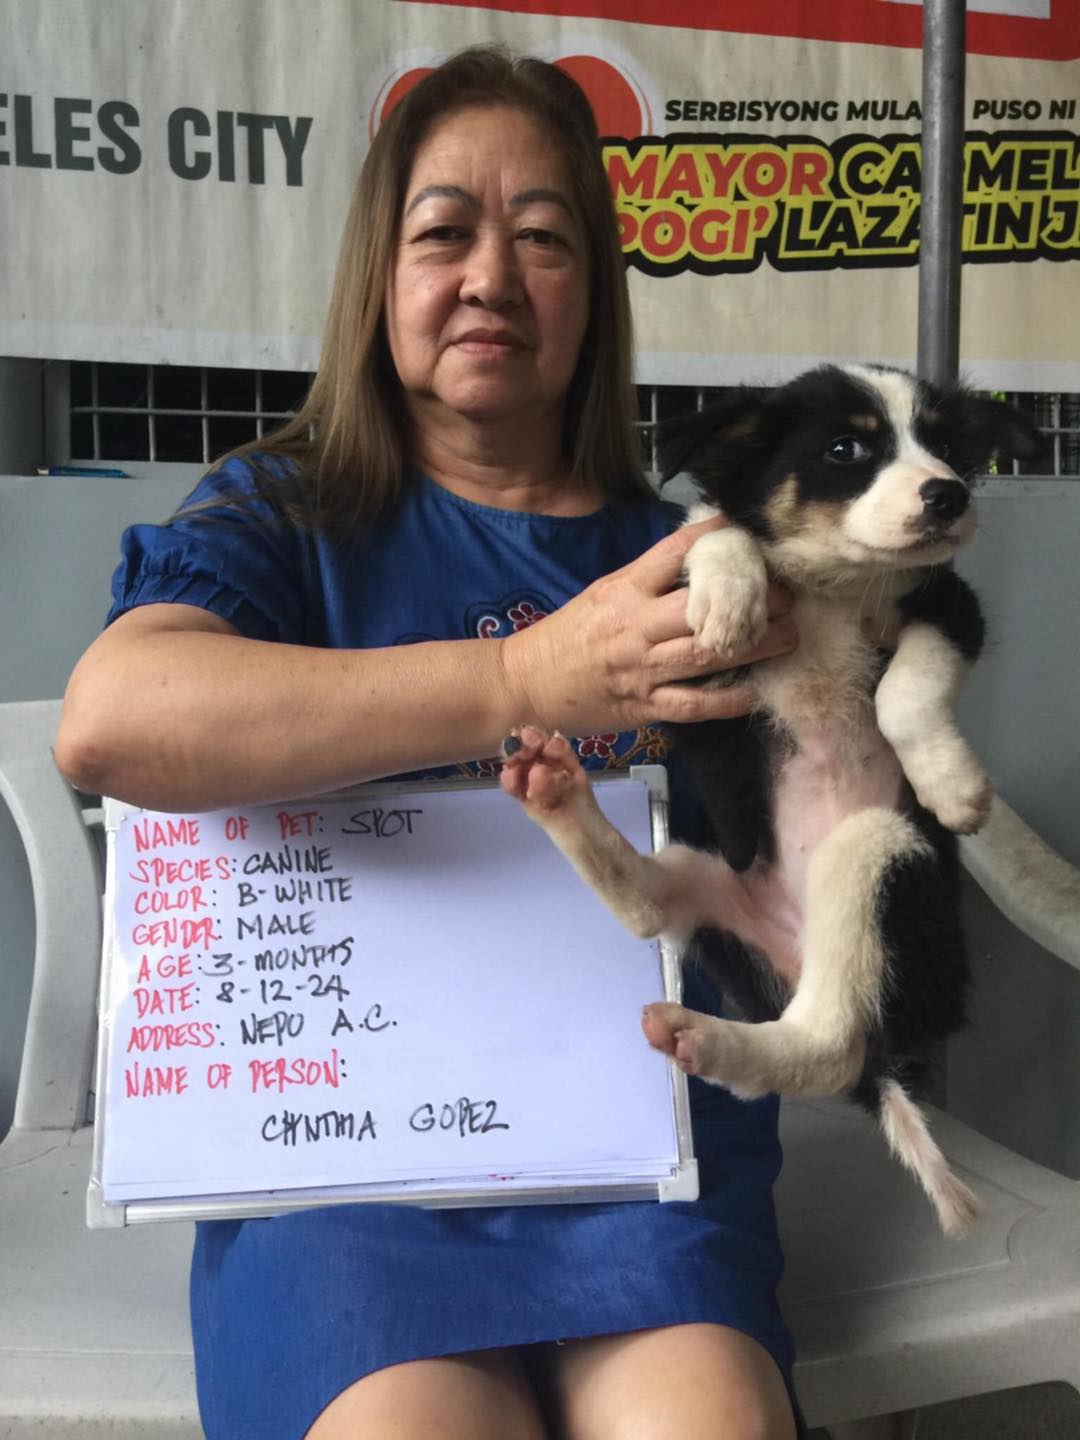 ELES CITY
SERBISYONG MULA PUSO NI
MAYOR CARMEL
POGI' LAZATIN J
NAME OF PET: SPOT
SPECIES: CANINE
COLOR: B-WHITE
GENDER: MALE
AGE: 3-MONTHS
DATE: 8-12-24
ADDRESS: NEPO A.C.
NAME OF PERSON:
CHYNTHIA GOPEZ